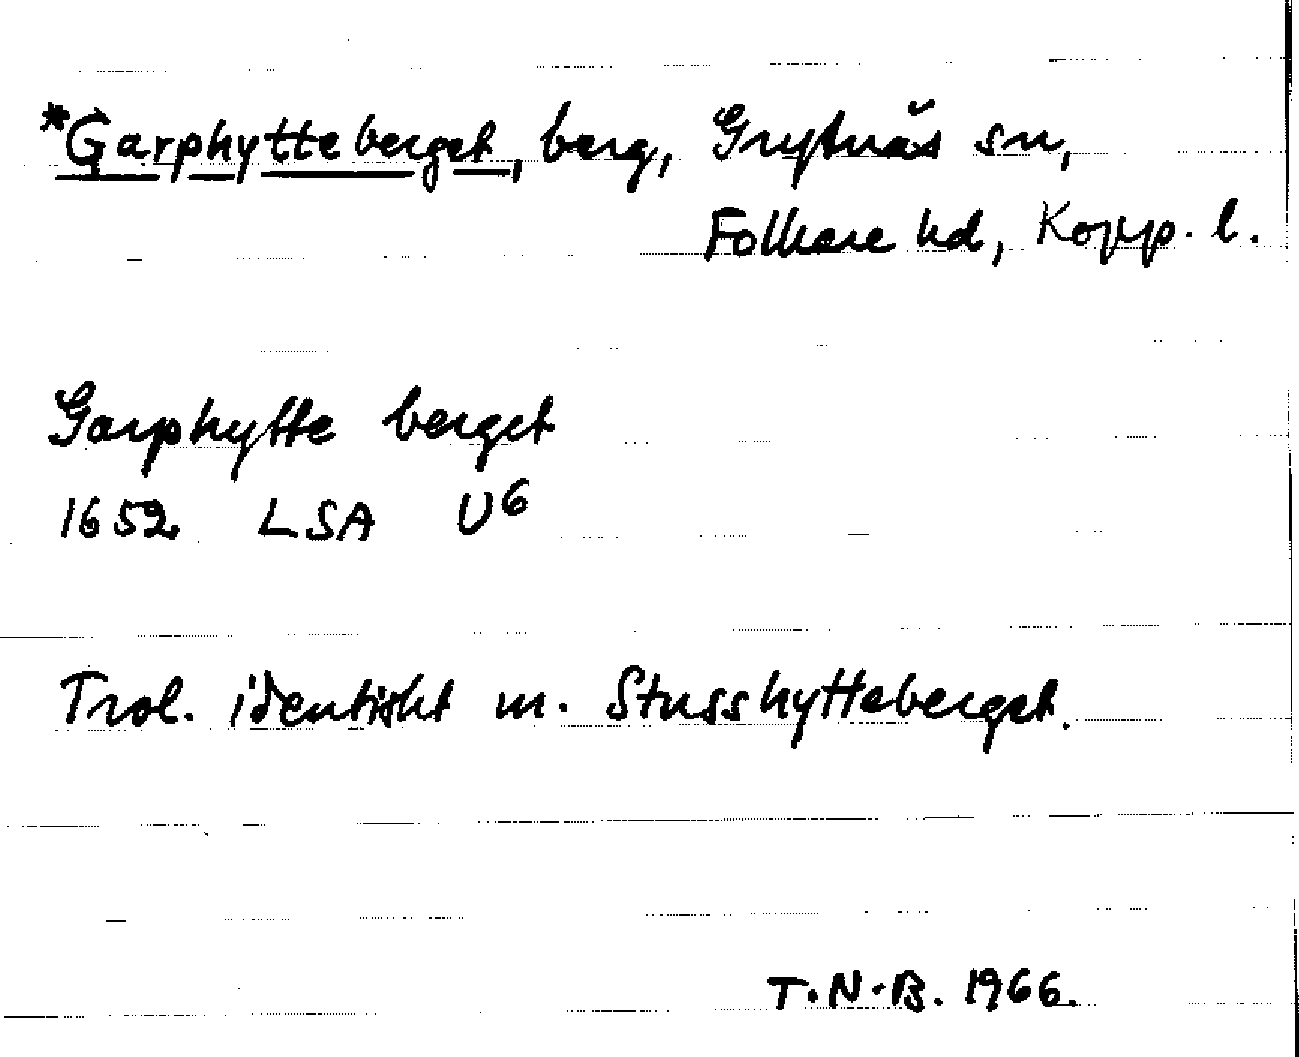 *Garphytteberget, berg, Grytnäs sn,
Folkare hd, Kopp. l.
Garphytte berget
1652 LSA U6
Trol. identiskt m. Stusshytteberget.
T.N-B. 1966.